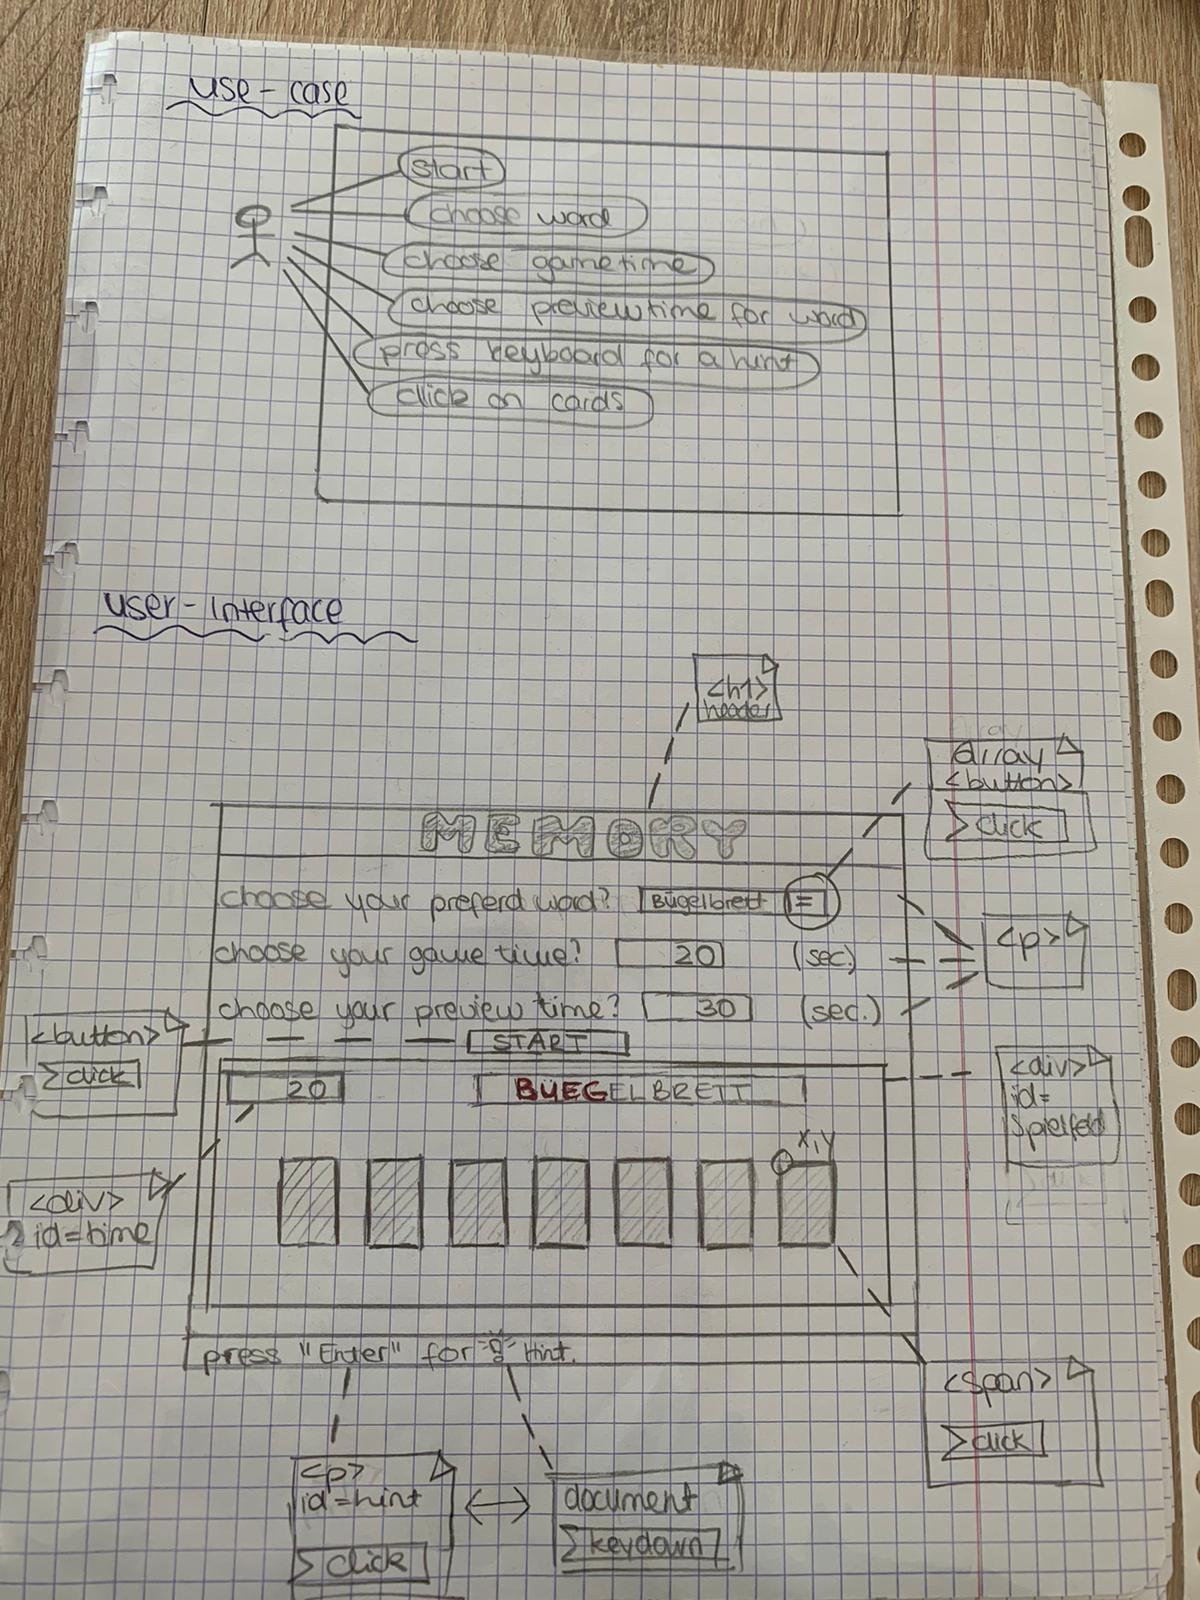 use-case
start
choose word
choose gametime
choose previewtime for word
press keyboard for a hint
click on cards
user-interface
<h1>
header
array
<button>
click
MEMORY
choose your preferd word? Bügelbrett =
<p>
choose your game time? 20 (sec.)
choose your preview time? 30 (sec.)
<button>
click
START
<div>
id=
Spielfeld
20 BUEGELBRETT
X,Y
<div>
id=time
press "Enter" for Hint.
<span>
click
<p>
id=hint
click
document
keydown